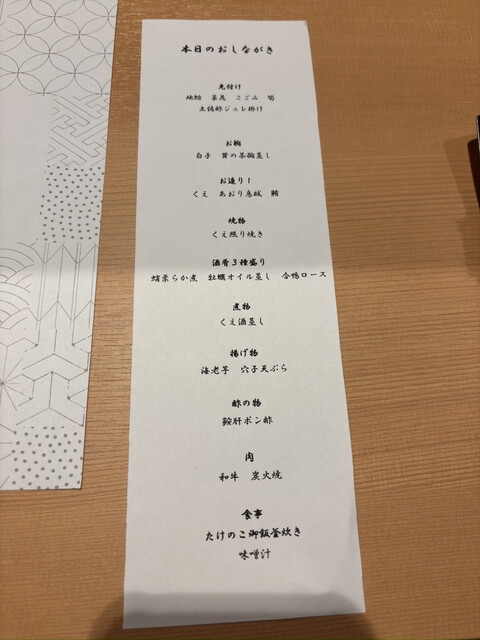 本日のおしながき
先付け
地蛤 菜花 こごみ 筍
土佐酢ジュレ掛け
お椀
白子 茸の茶碗蒸し
お造り！
くえ あおり烏賊 鮪
焼物
くえ照り焼き
酒肴3種盛り
蛸柔らか煮 牡蠣オイル蒸し 合鴨ロース
煮物
くえ酒蒸し
揚げ物
海老芋 穴子天ぷら
酢の物
鮟肝ポン酢
肉
和牛 炭火焼
食事
たけのこ御飯釜炊き
味噌汁